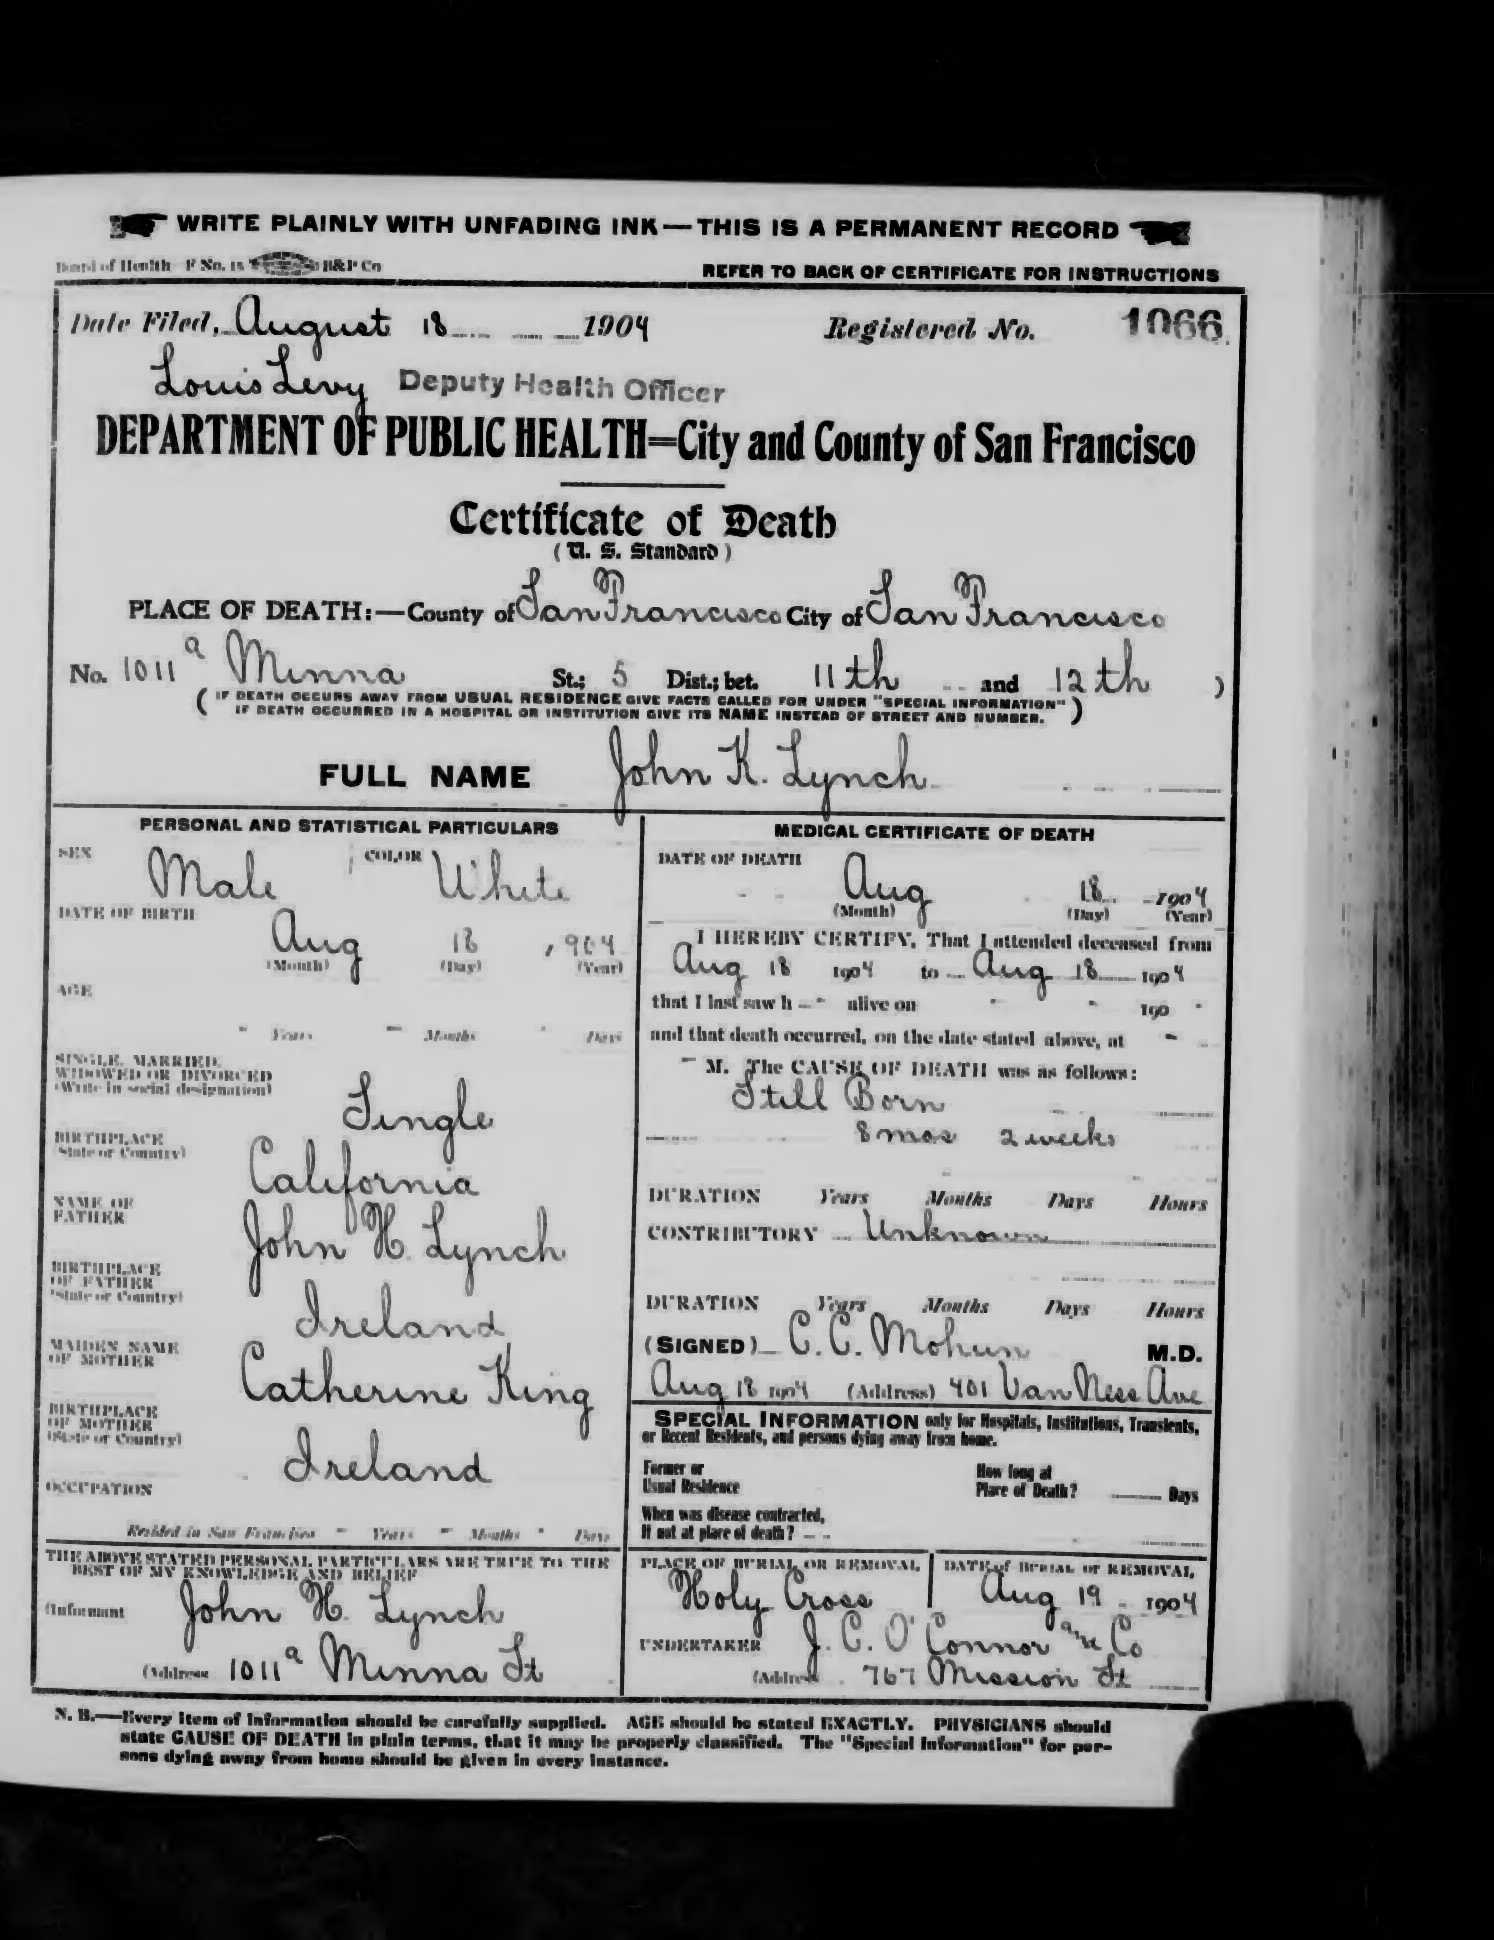 WRITE PLAINLY WITH UNFADING INK—THIS IS A PERMANENT RECORD
Board of Health F No. 15 B&P Co
REFER TO BACK OF CERTIFICATE FOR INSTRUCTIONS
Date Filed, August 18 1904 Registered No. 1066
Louis Levy Deputy Health Officer
DEPARTMENT OF PUBLIC HEALTH=City and County of San Francisco
Certificate of Death
(U. S. Standard)
PLACE OF DEATH:—County of San Francisco City of San Francisco
No. 1011 a Minna St.; 5 Dist.; bet. 11th and 12th )
( IF DEATH OCCURS AWAY FROM USUAL RESIDENCE GIVE FACTS CALLED FOR UNDER "SPECIAL INFORMATION"
IF DEATH OCCURRED IN A HOSPITAL OR INSTITUTION GIVE ITS NAME INSTEAD OF STREET AND NUMBER. )
FULL NAME John K. Lynch
PERSONAL AND STATISTICAL PARTICULARS
SEX Male COLOR White
DATE OF BIRTH
Aug 18, 904
(Month) (Day) (Year)
AGE
" Years " Months " Days
SINGLE, MARRIED,
WIDOWED OR DIVORCED
(Write in social designation)
Single
BIRTHPLACE
(State or Country)
California
NAME OF
FATHER
John H. Lynch
BIRTHPLACE
OF FATHER
(State or Country)
Ireland
MAIDEN NAME
OF MOTHER
Catherine King
BIRTHPLACE
OF MOTHER
(State or Country)
Ireland
OCCUPATION
Resided in San Francisco " Years " Months " Days
THE ABOVE STATED PERSONAL PARTICULARS ARE TRUE TO THE
BEST OF MY KNOWLEDGE AND BELIEF
(Informant John H. Lynch
(Address 1011 a Minna St
MEDICAL CERTIFICATE OF DEATH
DATE OF DEATH
Aug 18 1904
(Month) (Day) (Year)
I HEREBY CERTIFY, That I attended deceased from
Aug 18 1904 to Aug 18 1904
that I last saw h " alive on " " 190 "
and that death occurred, on the date stated above, at "
" M. The CAUSE OF DEATH was as follows:
Still Born
8 mos 2 weeks
DURATION Years Months Days Hours
CONTRIBUTORY Unknown
DURATION Years Months Days Hours
(SIGNED) C. C. Mohun M.D.
Aug 18 1904 (Address) 401 Van Ness Ave
SPECIAL INFORMATION only for Hospitals, Institutions, Transients,
or Recent Residents, and persons dying away from home.
Former or
Usual Residence
How long at
Place of Death? Days
When was disease contracted,
If not at place of death?
PLACE OF BURIAL OR REMOVAL
Holy Cross
DATE of BURIAL or REMOVAL
Aug 19 1904
UNDERTAKER J. C. O'Connor and Co
(Address 767 Mission St
N. B.—Every item of information should be carefully supplied. AGE should be stated EXACTLY. PHYSICIANS should
state CAUSE OF DEATH in plain terms, that it may be properly classified. The "Special Information" for per-
sons dying away from home should be given in every instance.